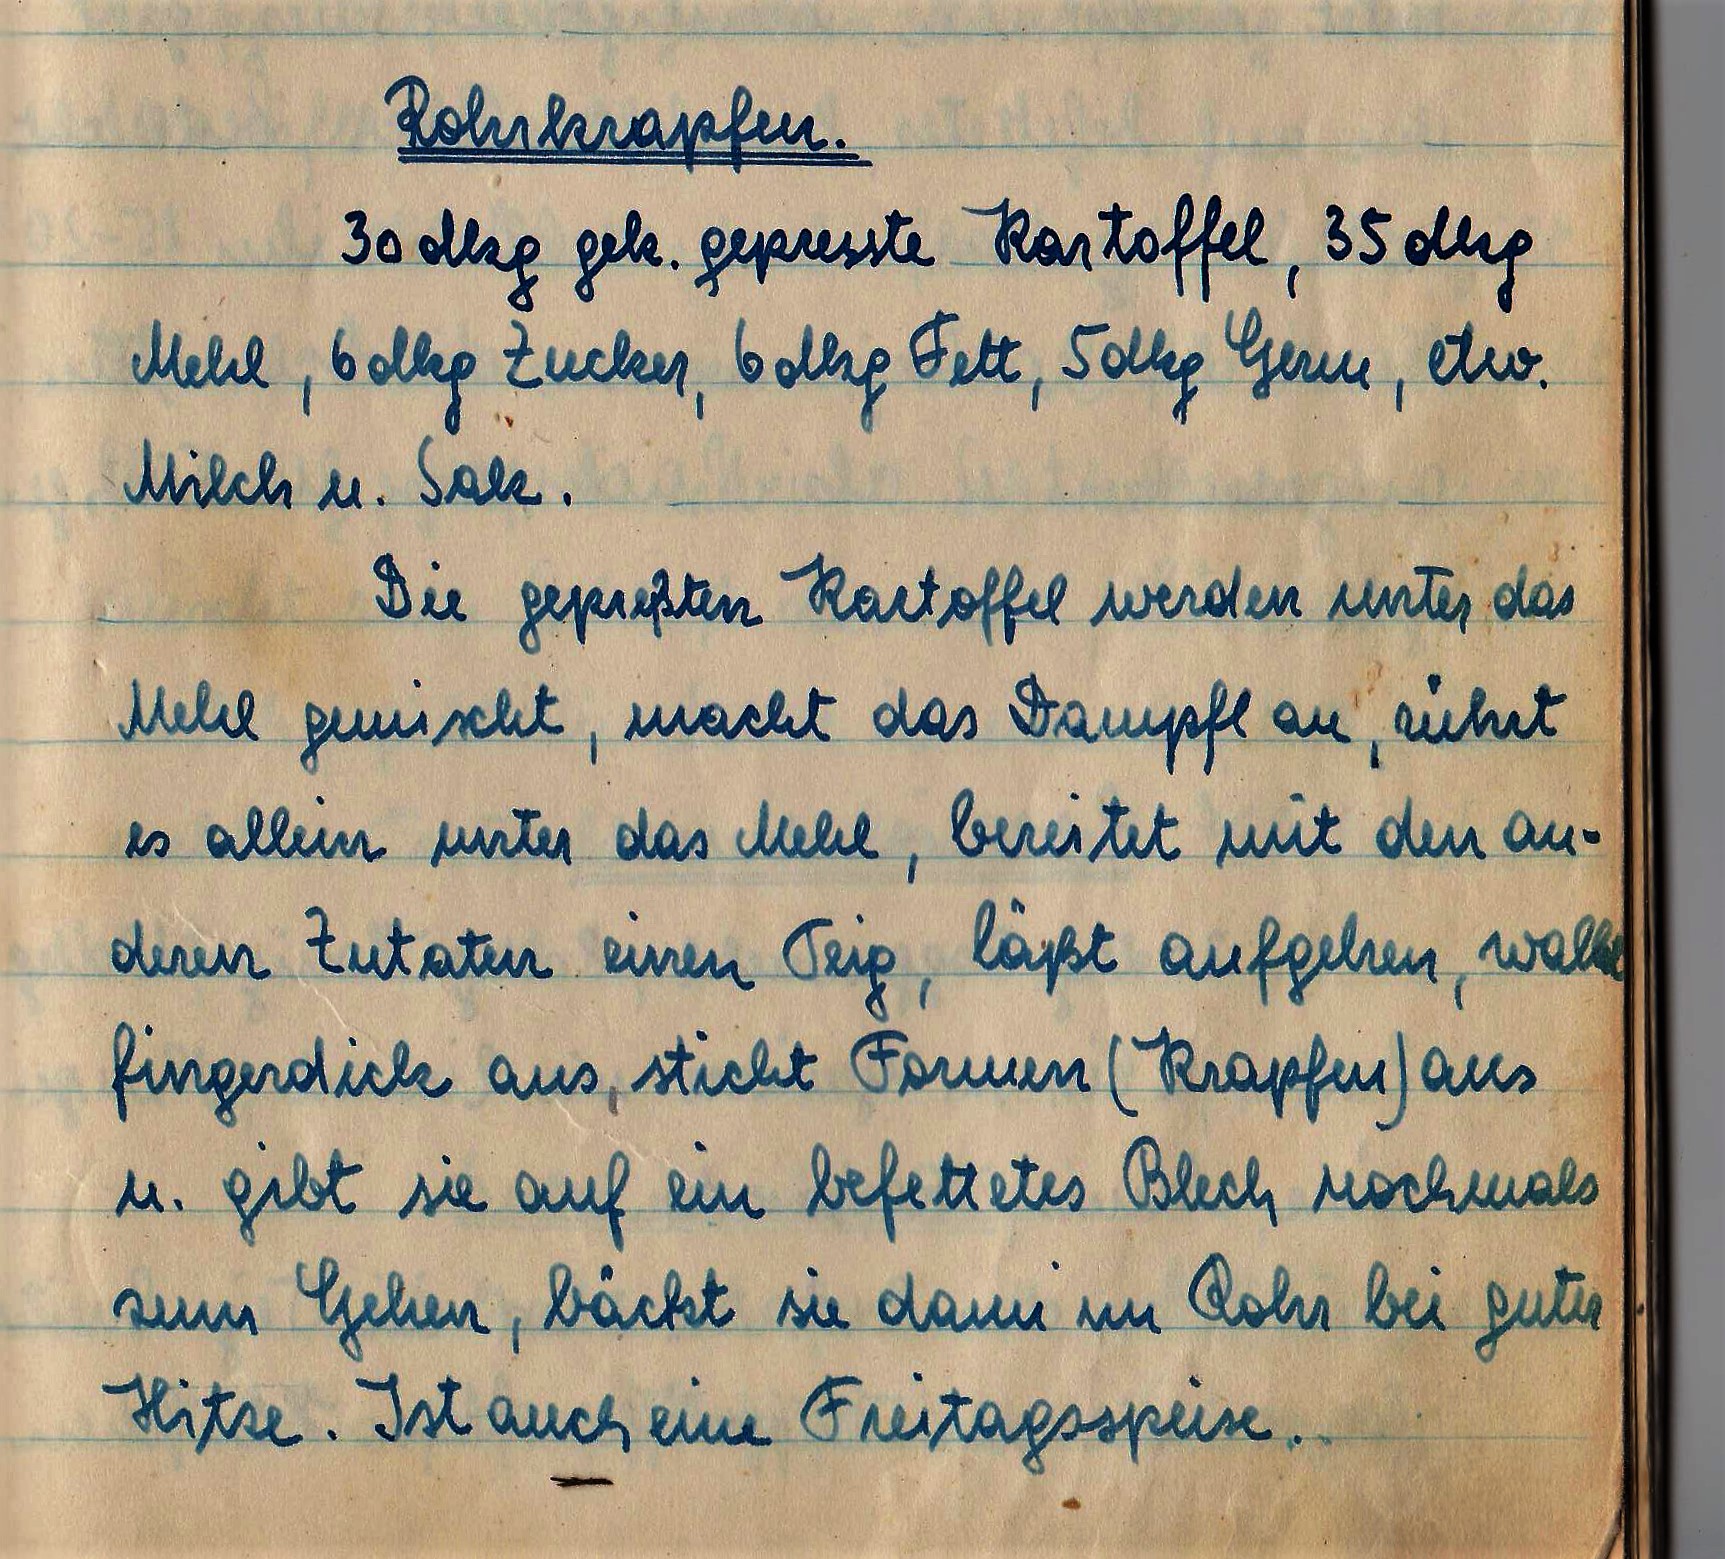 Rohrkrapfen.
30 dkg gek. gepresste Kartoffel, 35 dkg
Mehl, 6 dkg Zucker, 6 dkg Fett, 5 dkg Germ, etw.
Milch u. Salz.
Die gepreßten Kartoffel werden unter das
Mehl gemischt, macht das Dampfl an, rührt
es allein unter das Mehl, bereitet mit den an-
deren Zutaten einen Teig, läßt aufgehen,
fingerdick aus, sticht Formen (Krapfen) aus
u. gibt sie auf ein befettetes Blech nochmals
zum Gehen, bäckt sie dann im Rohr bei guter
Hitze. Ist auch eine Freitagsspeise.